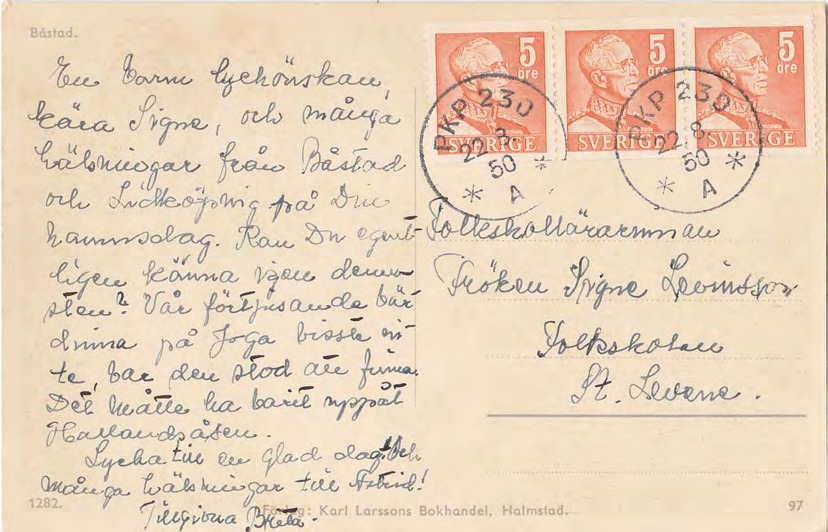 Båstad.
En varm lyckönskan,
kära Signe, och många
hälsningar från Båstad
och Lidköping på Din
namnsdag. Kan Du egent-
ligen känna igen denna
sten? Vår förtjusande vär-
dinna på Joga visste in-
te, var den stod att finna.
Det måtte ha varit uppåt
Hallandsåsen.
Lycka till en glad dag! Och
många hälsningar till Astrid!
Tillgivna Breta.
5
öre
SVERIGE
5
öre
SVERIGE
5
öre
SVERIGE
PKP 230
22.8
50
* A *
PKP 230
22.8
50
* A *
Folkskollärarinnan
Fröken Signe Levinsson
Folkskolan
St. Levene.
1282.
Förlag: Karl Larssons Bokhandel, Halmstad.
97